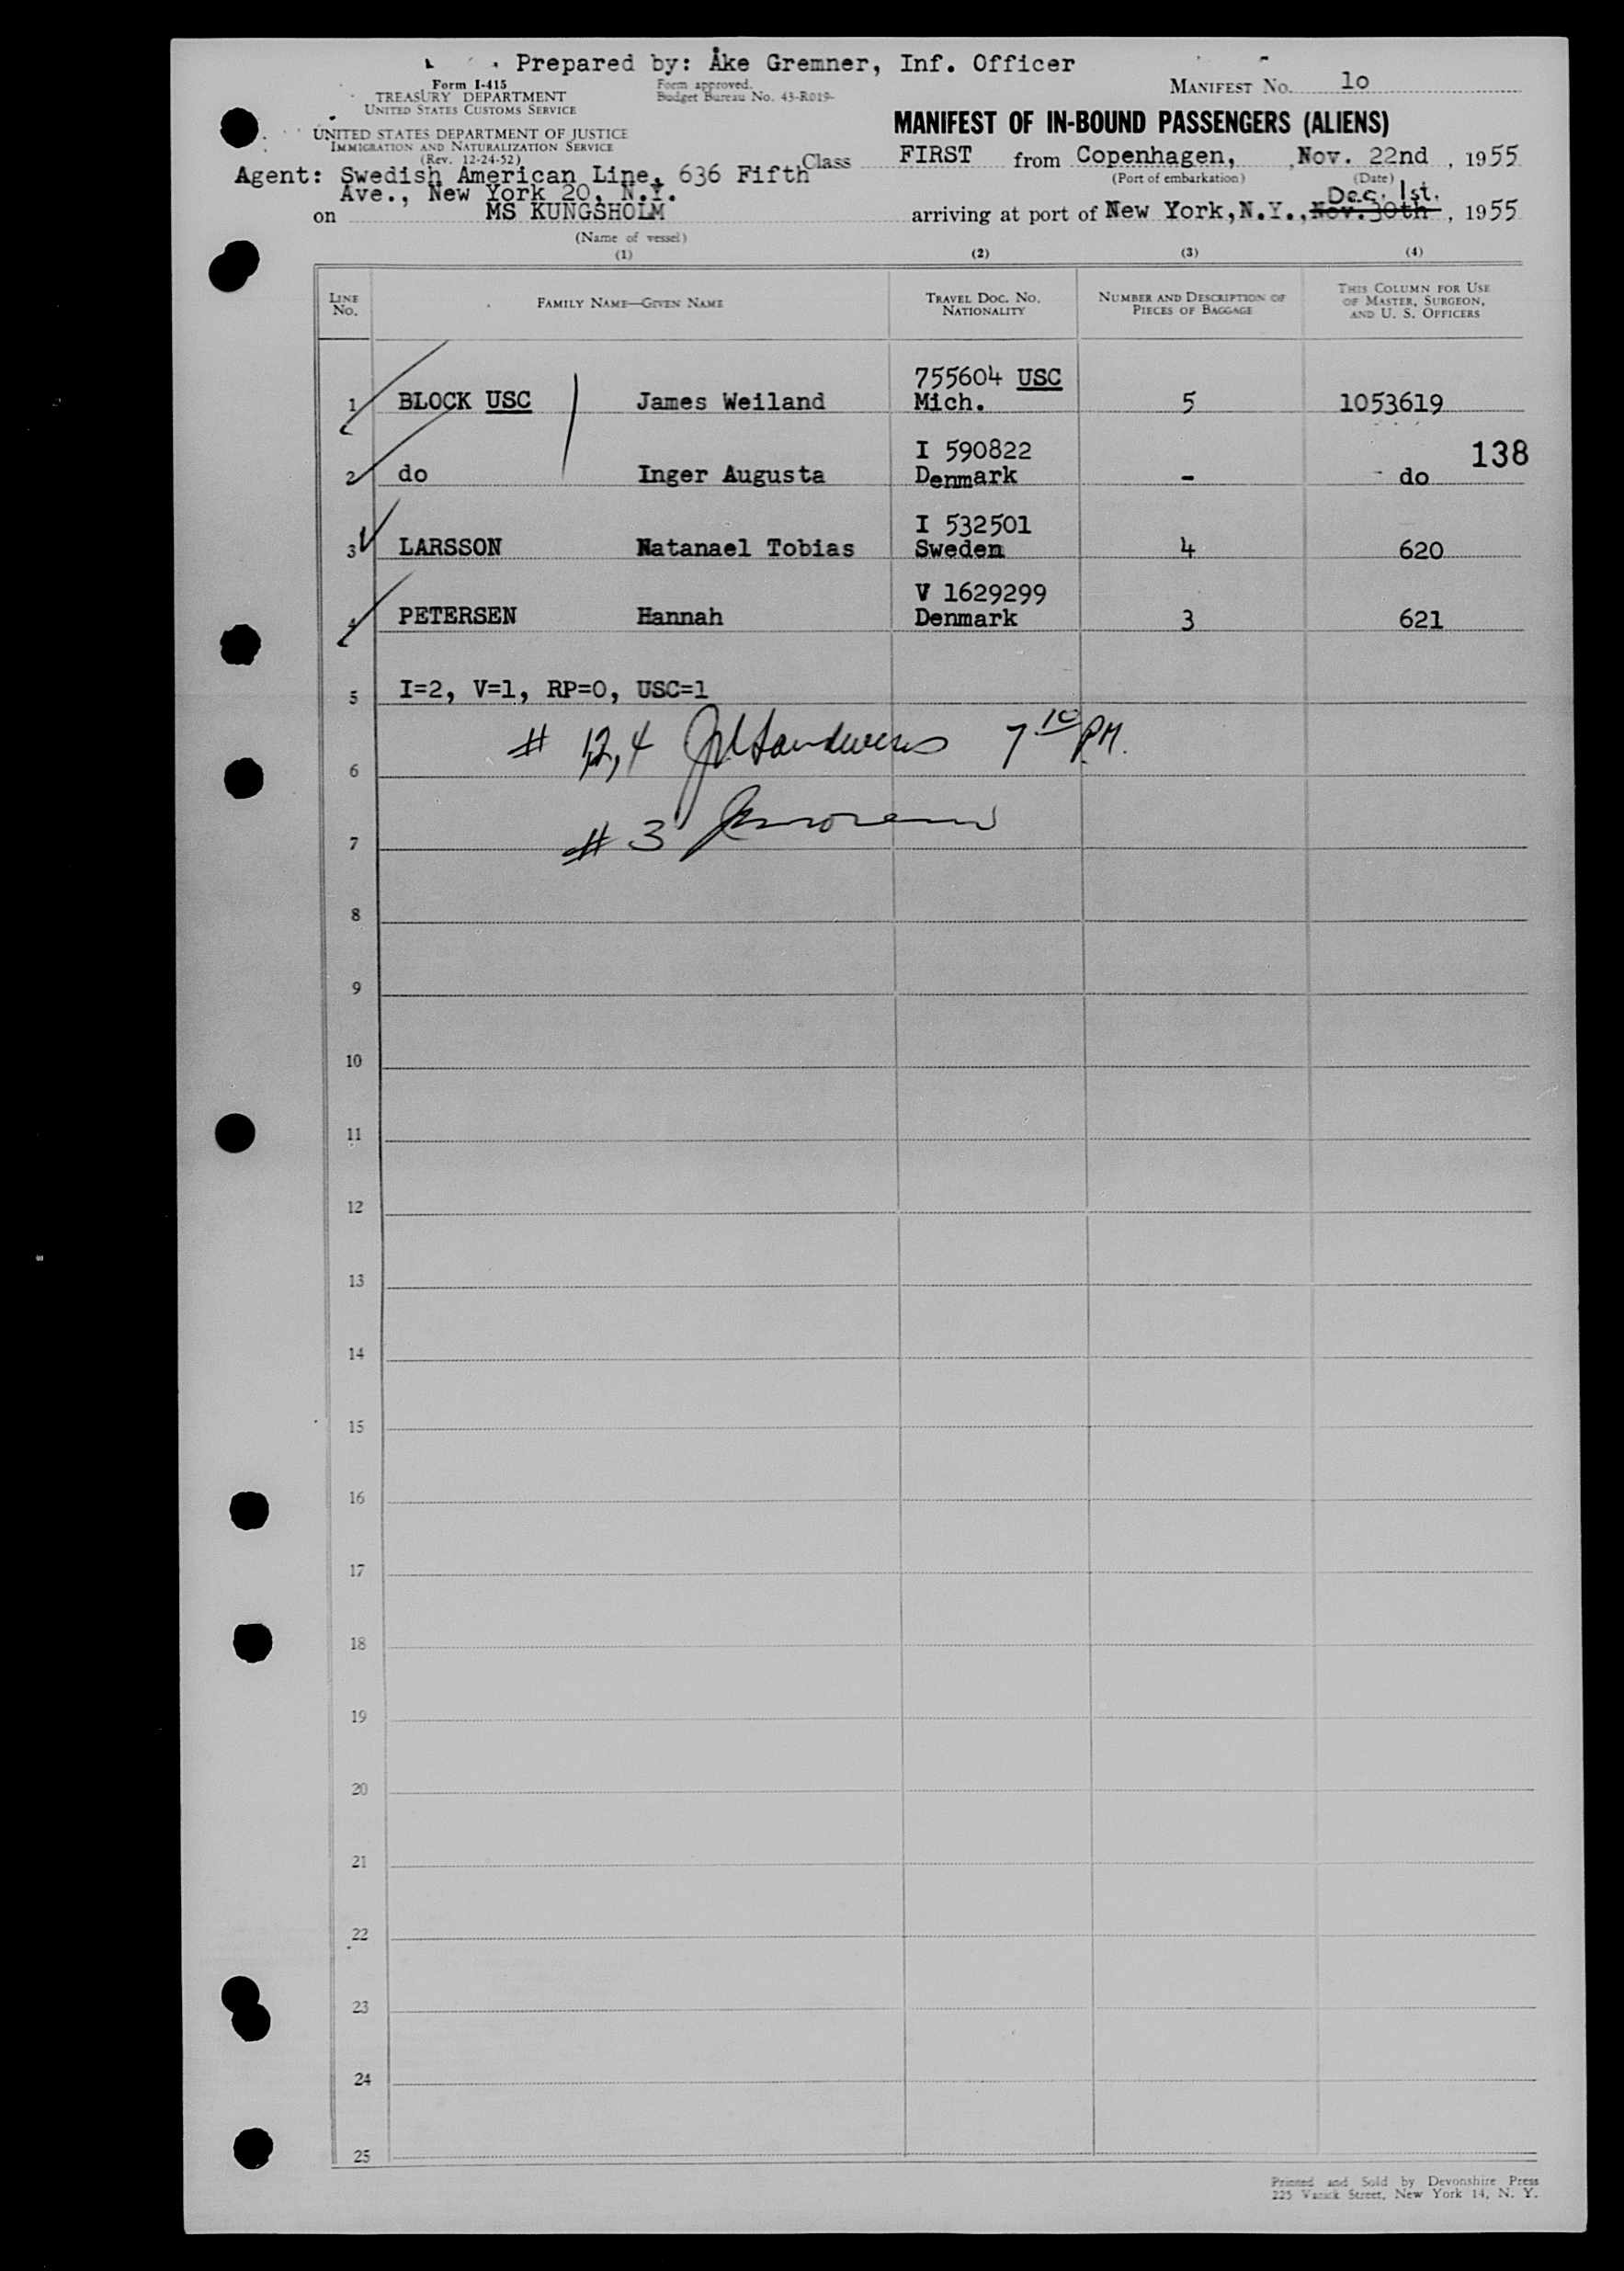 Prepared by: Åke Gremner, Inf. Officer
Form I-415
TREASURY DEPARTMENT
UNITED STATES CUSTOMS SERVICE
Form approved.
Budget Bureau No. 43-R019-
MANIFEST No. 10
UNITED STATES DEPARTMENT OF JUSTICE
IMMIGRATION AND NATURALIZATION SERVICE
(Rev. 12-24-52)
MANIFEST OF IN-BOUND PASSENGERS (ALIENS)
Agent: Swedish American Line, 636 Fifth
Ave., New York 20, N.Y.
Class FIRST from Copenhagen, , Nov. 22nd , 1955
(Port of embarkation) (Date)
Dec. 1st.
on MS KUNGSHOLM arriving at port of New York, N.Y., Nov. 30th , 1955
(Name of vessel)
(1) (2) (3) (4)
LINE No. FAMILY NAME—GIVEN NAME TRAVEL DOC. NO. NATIONALITY NUMBER AND DESCRIPTION OF PIECES OF BAGGAGE THIS COLUMN FOR USE OF MASTER, SURGEON, AND U. S. OFFICERS
755604 USC
1 BLOCK USC James Weiland Mich. 5 1053619
I 590822 138
2 do Inger Augusta Denmark - - do
I 532501
3 LARSSON Natanael Tobias Sweden 4 620
V 1629299
4 PETERSEN Hannah Denmark 3 621
5 I=2, V=1, RP=0, USC=1
# 1,2,4 7 10 PM.
6
# 3
7
8
9
10
11
12
13
14
15
16
17
18
19
20
21
22
23
24
25
Printed and Sold by Devonshire Press
225 Varick Street, New York 14, N. Y.